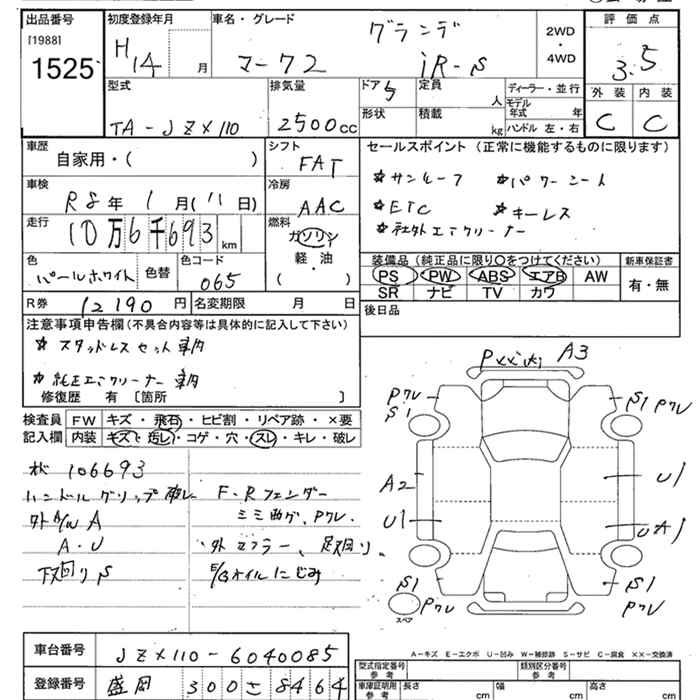 出品番号
[1988]
1525
初度登録年月
H14 月
車名・グレード
グランデ
マーク2 iR-s
2WD
・
4WD
評価点
3.5
外装 内装
C C
型式
TA-JZX110
排気量
2500cc
ドア 5
定員
人
形状
積載
kg
ディーラー・並行
モデル年式 年
ハンドル 左・右
車歴
自家用・( )
シフト
FAT
車検
R8年 1月(11日)
冷房
AAC
走行
10万6千693
km
燃料
ガソリン
軽・油
( )
色
パールホワイト
色替
色コード
065
R券 12190円
名変期限 月 日
セールスポイント(正常に機能するものに限ります)
☆サンルーフ ☆パワーシート
☆ETC ☆キーレス
☆社外エアクリーナー
装備品(純正品に限り○をつけてください)
PS PW ABS エアB AW
SR ナビ TV カワ
新車保証書
有・無
後日品
注意事項申告欄(不具合内容等は具体的に記入して下さい)
☆スタッドレスセット車内
☆純正エアクリーナー車内
修復歴 有 〔箇所 〕
検査員記入欄
FW キズ・飛石・ヒビ割・リペア跡・×要
内装 キズ・汚レ・コゲ・穴・スレ・キレ・破レ
106693
ハンドルグリップ破レ
外A/W A
A・U
下回りS
F・Rフェンダー
ミミ曲ゲ、Pクレ.
外マフラー、足回り。
E/Gオイルにじみ
A3
Pクレ
S1
S1 Pクレ
A2
U1
U1
UA1
S1
Pクレ
S1
Pクレ
スペア
A-キズ E-エクボ U-凹み W-補修跡 S-サビ C-腐食 ××-交換済
車台番号 JZX110-6040085
登録番号 盛岡 300さ8464
型式指定番号
参考
類別区分番号
参考
車庫証明用
参考
長さ cm
幅 cm
高さ cm